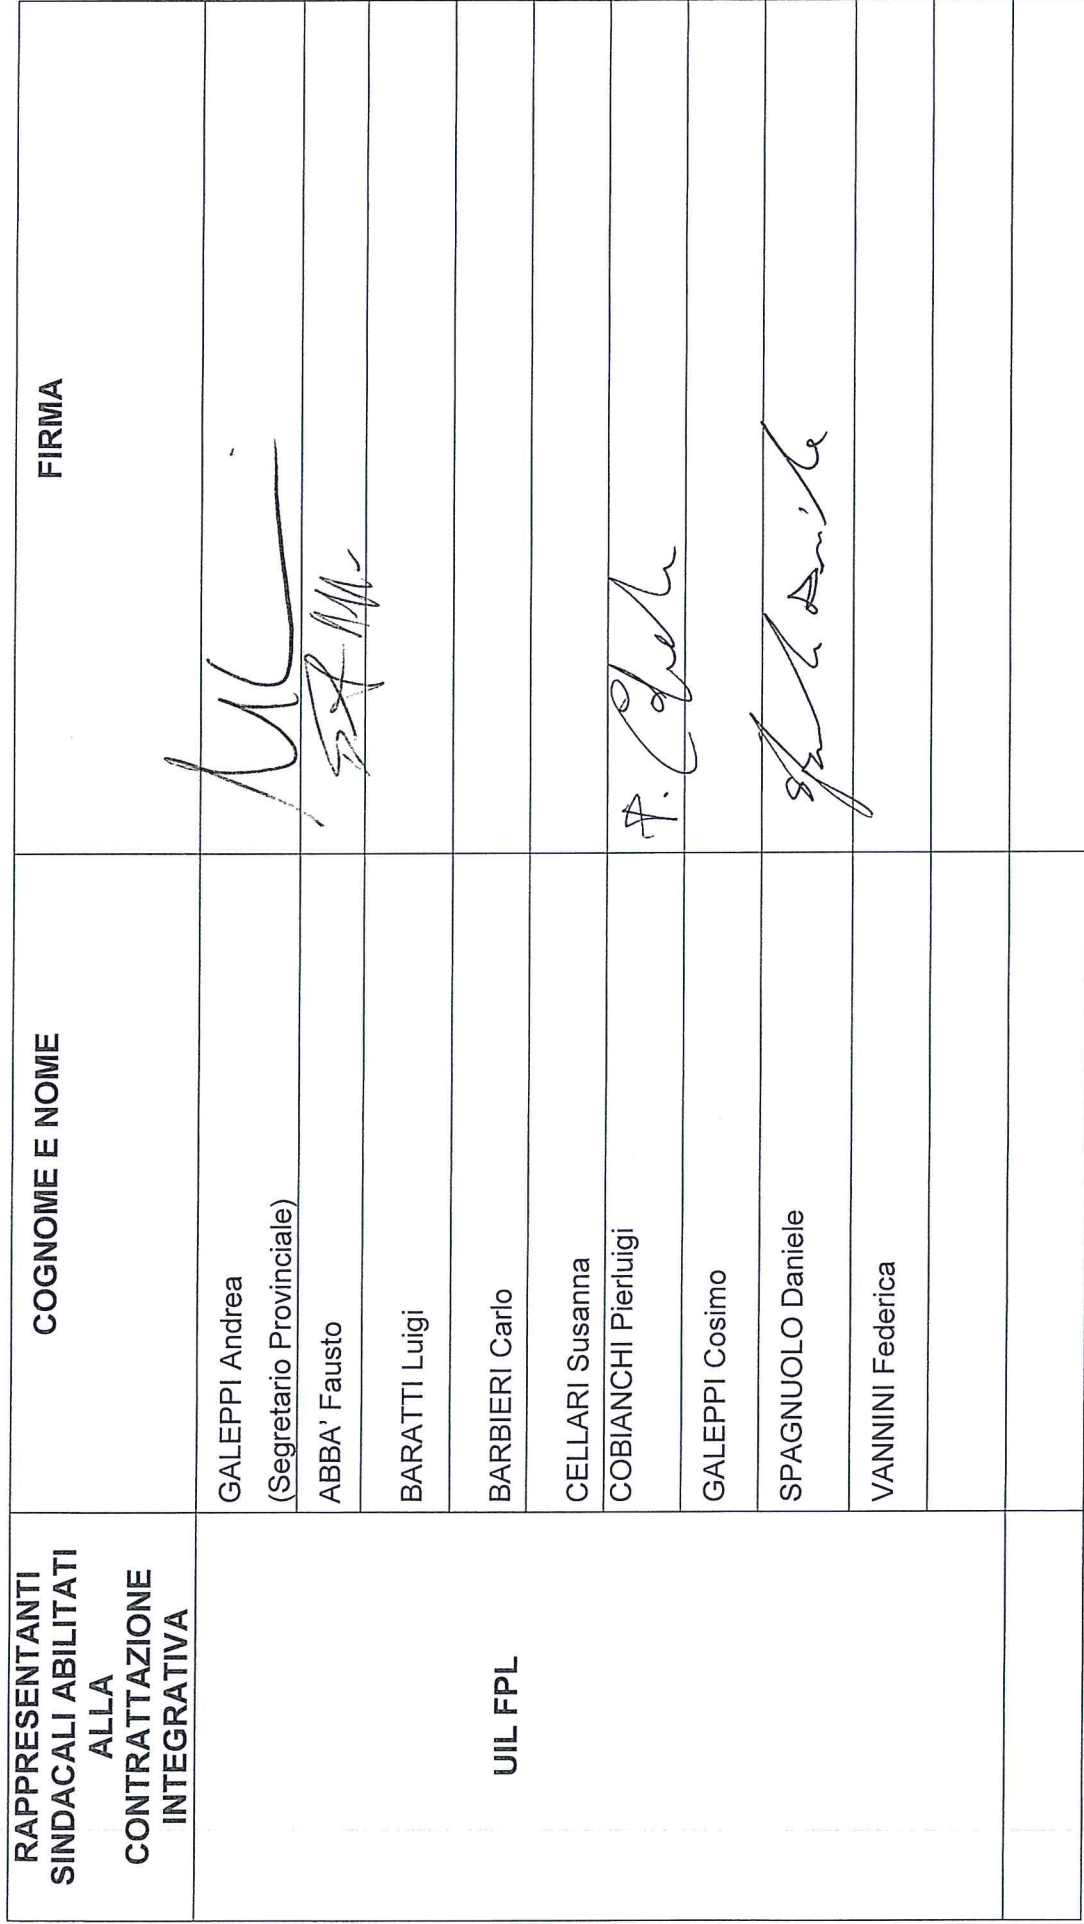 RAPPRESENTANTI
SINDACALI ABILITATI
ALLA
CONTRATTAZIONE
INTEGRATIVA
COGNOME E NOME
FIRMA
UIL FPL
GALEPPI Andrea
(Segretario Provinciale)
ABBA' Fausto
BARATTI Luigi
BARBIERI Carlo
CELLARI Susanna
COBIANCHI Pierluigi
GALEPPI Cosimo
SPAGNUOLO Daniele
VANNINI Federica